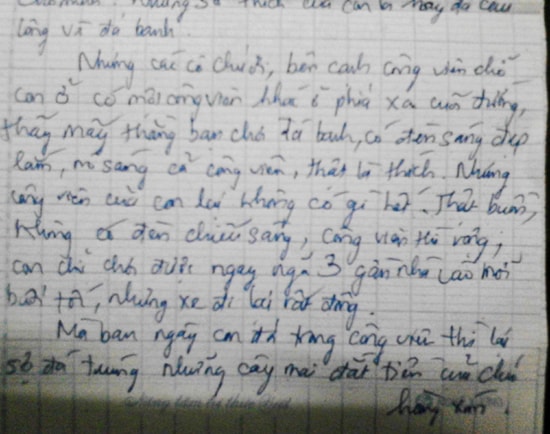 thích của con là nhảy dây cầu
lông và đá banh.
Nhưng các cô chú ơi, bên cạnh công viên chỗ
con ở có một công viên khác ở phía xa cuối đường,
thấy mấy thằng bạn chỗ đá banh, có đèn sáng đẹp
lắm, nó sáng cả công viên, thật là thích. Nhưng
công viên của con lại không có gì hết. Thật buồn,
không có đèn chiếu sáng, công viên thì rộng,
con chỉ chơi được ngay ngã 3 gần nhà vào mỗi
buổi tối, nhưng xe đi lại rất đông.
Mà ban ngày con đá trong công viên thì lại
sợ đá trúng những cây mai đắt tiền của chú
hàng xóm.